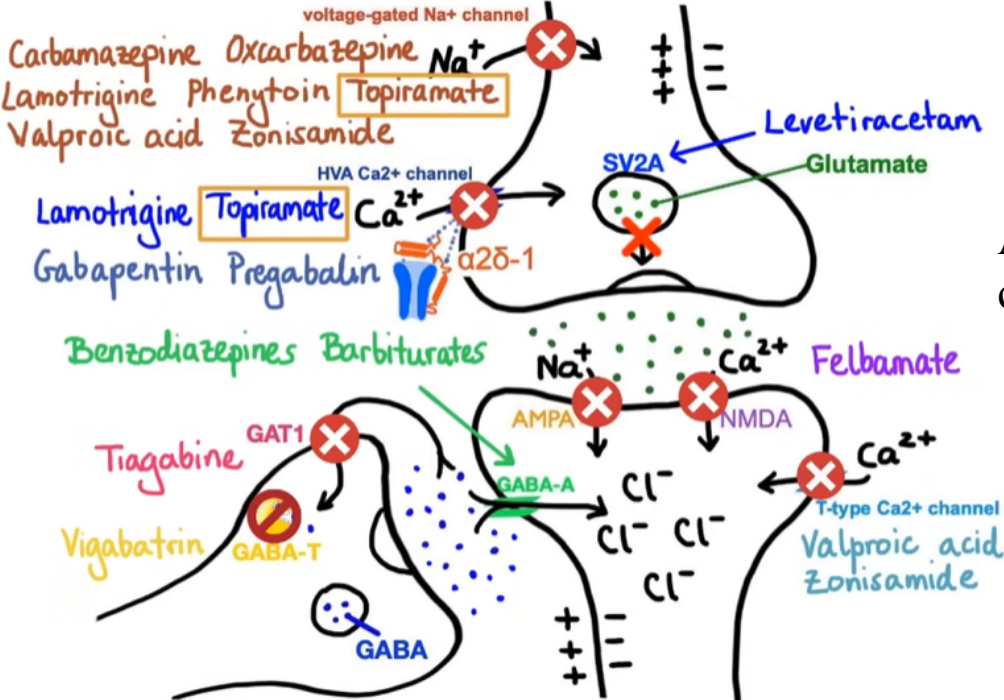 voltage-gated Na+ channel
Carbamazepine Oxcarbazepine
Na⁺
Lamotrigine Phenytoin Topiramate
Valproic acid Zonisamide
+ −
+ −
+ −
Levetiracetam
SV2A
Glutamate
HVA Ca2+ channel
Lamotrigine Topiramate Ca²⁺
Gabapentin Pregabalin
α2δ-1
Benzodiazepines Barbiturates
Na⁺
Ca²⁺
Felbamate
AMPA
NMDA
GAT1
Tiagabine
Ca²⁺
GABA-A
Cl⁻
T-type Ca2+ channel
Cl⁻ Cl⁻
Vigabatrin
GABA-T
Valproic acid
Zonisamide
Cl⁻
GABA
+ −
+ −
+ −